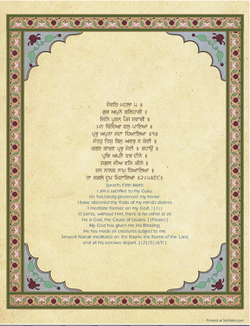 ਸੋਰਠਿ ਮਹਲਾ ੫ ॥
ਗੁਰ ਅਪੁਨੇ ਬਲਿਹਾਰੀ ॥
ਜਿਨਿ ਪੂਰਨ ਪੈਜ ਸਵਾਰੀ ॥
ਮਨ ਚਿੰਦਿਆ ਫਲੁ ਪਾਇਆ ॥
ਪ੍ਰਭੁ ਅਪੁਨਾ ਸਦਾ ਧਿਆਇਆ ॥੧॥
ਸੰਤਹੁ ਤਿਸੁ ਬਿਨੁ ਅਵਰੁ ਨ ਕੋਈ ॥
ਕਰਣ ਕਾਰਣ ਪ੍ਰਭੁ ਸੋਈ ॥ ਰਹਾਉ ॥
ਪ੍ਰਭਿ ਅਪਨੈ ਵਰ ਦੀਨੇ ॥
ਸਗਲ ਜੀਅ ਵਸਿ ਕੀਨੇ ॥
ਜਨ ਨਾਨਕ ਨਾਮੁ ਧਿਆਇਆ ॥
ਤਾ ਸਗਲੇ ਦੂਖ ਮਿਟਾਇਆ ॥੨॥੫॥੬੯॥
Sorat'h, Fifth Mehl:
I am a sacrifice to my Guru.
He has totally preserved my honor.
I have obtained the fruits of my mind's desires.
I meditate forever on my God. ||1||
O Saints, without Him, there is no other at all.
He is God, the Cause of causes. ||Pause||
My God has given me His Blessing.
He has made all creatures subject to me.
Servant Nanak meditates on the Naam, the Name of the Lord,
and all his sorrows depart. ||2||5||69||